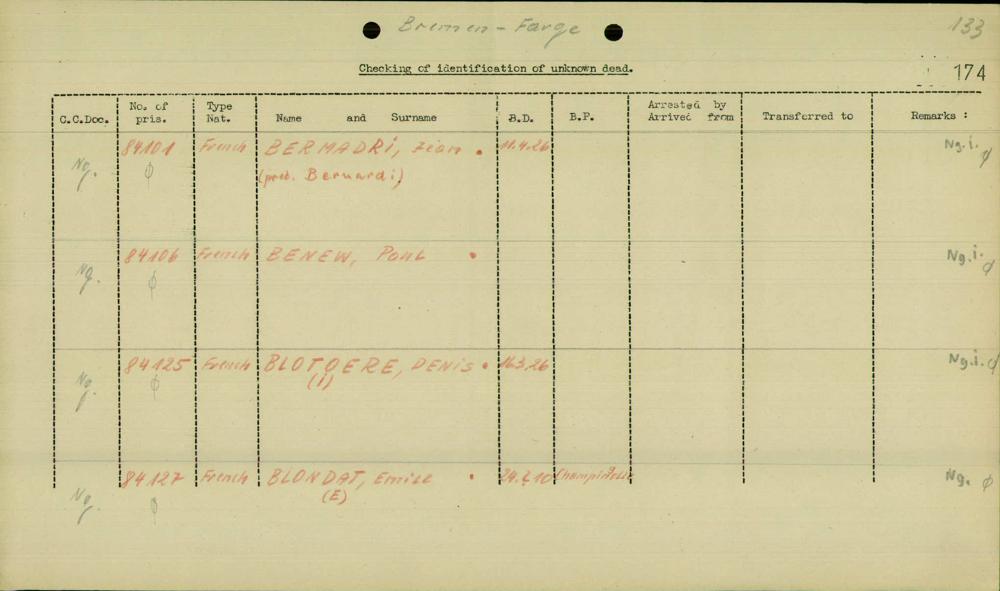 Bremen - Farge
133
Checking of identification of unknown dead.
174
C.C.Doc. No. of pris. Type Nat. Name and Surname B.D. B.P. Arrested by Arrived from Transferred to Remarks :
Ng. 84101 French BERMADRI, Jean . 11.4.26 Ng.i. ϕ
ϕ (prob. Bernardi)
Ng. 84106 French BENEW, Paul . Ng.i. ϕ
ϕ
Ng. 84125 French BLOTOERE, DENIS . 16.3.26 Ng.i. ϕ
ϕ (i)
Ng. 84127 French BLONDAT, Emile . Ng. ϕ
ϕ (E)